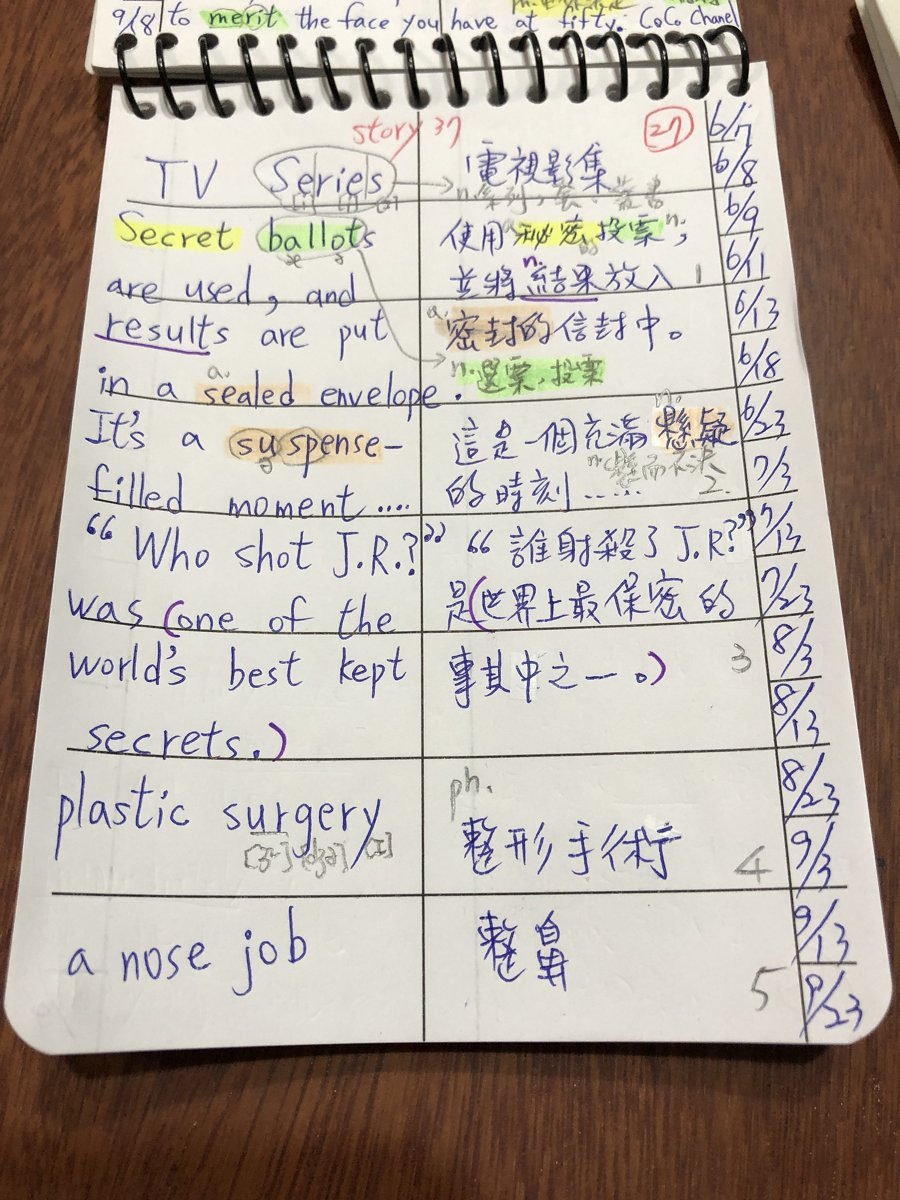 9/18 to merit the face you have at fifty. CoCo Chanel
story 37
27
TV Series
電視影集
n.系列,套,叢書
Secret ballots
are used, and
results are put
in a sealed envelope.
a.
使用秘密投票,
並將結果放入
密封的信封中。
n.選票,投票
1
It's a suspense-
filled moment....
這是一個充滿懸疑
的時刻......
n.懸而不決
2.
"Who shot J.R.?"
was (one of the
world's best kept
secrets.)
"誰射殺了J.R.?"
是(世界上最保密的
事其中之一。)
3
plastic surgery
ph.
整形手術
4
a nose job
整鼻
5
6/7
6/8
6/9
6/11
6/13
6/18
6/23
7/3
7/13
7/23
8/3
8/13
8/23
9/3
9/13
9/23